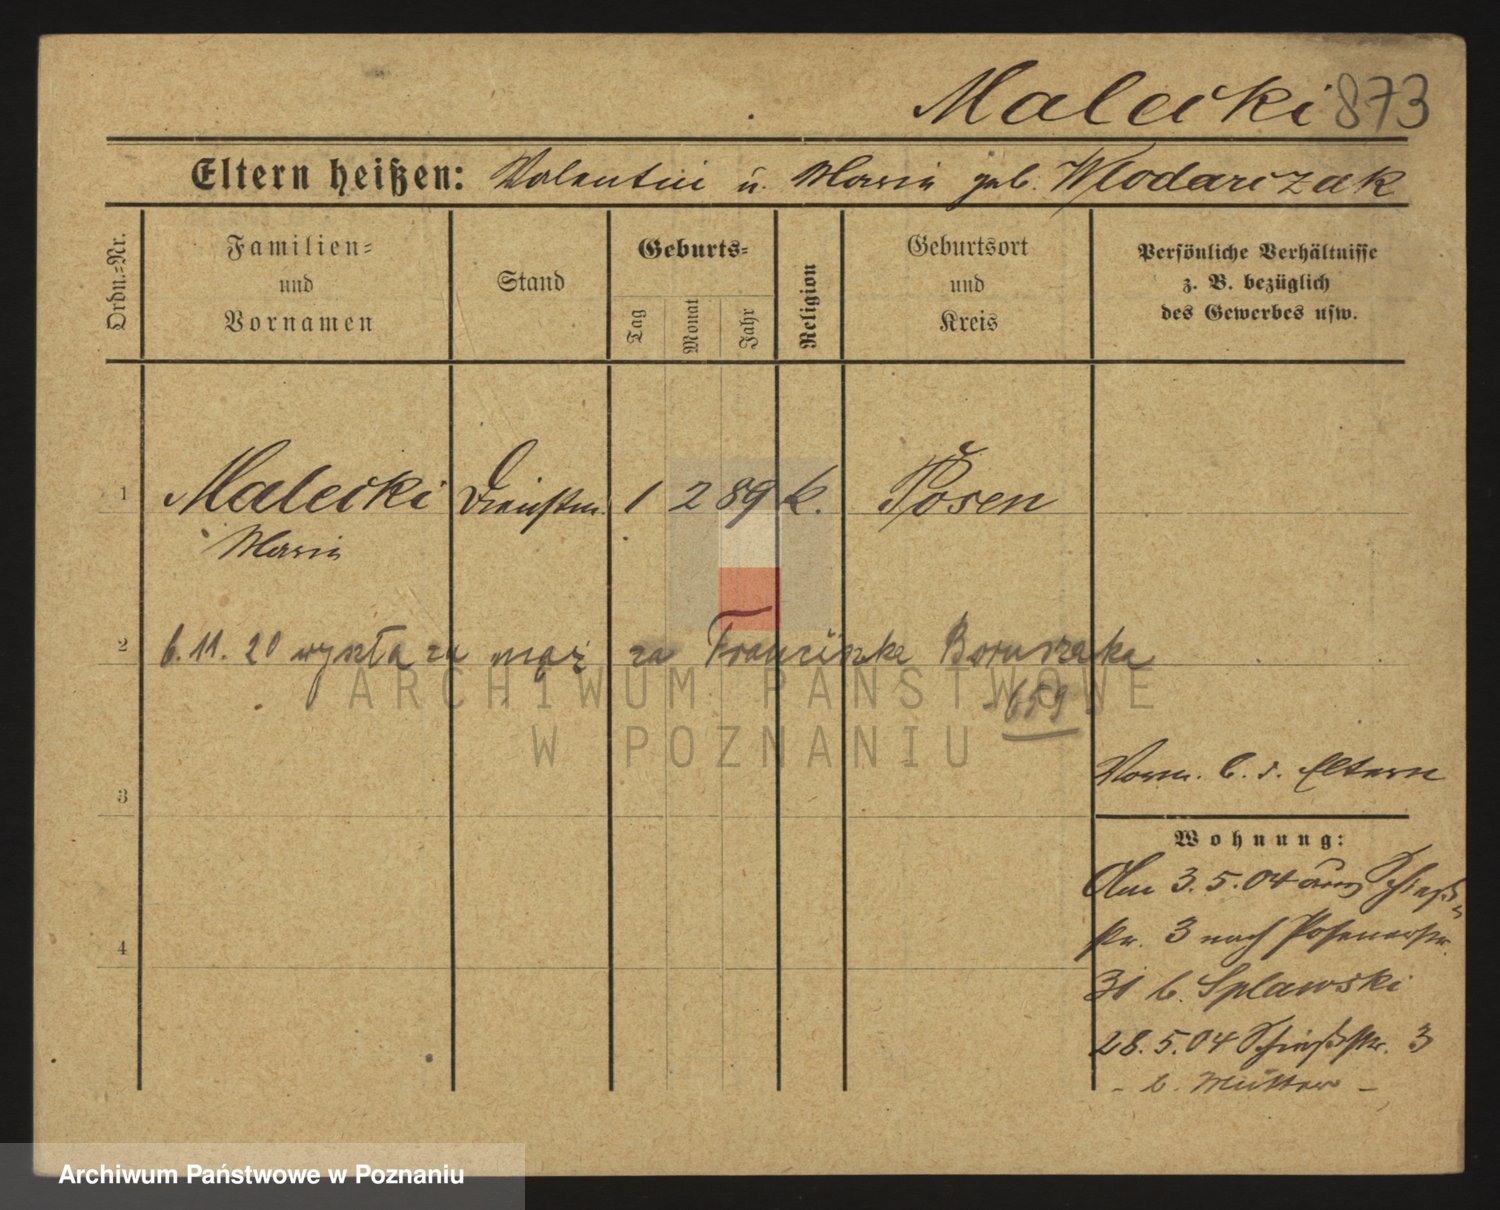 Malecki 873
Eltern heißen: Valentin u. Maria geb. Wlodarczak
Ordn.=Nr.
Familien=
und
Vornamen
Stand
Geburts=
Tag
Monat
Jahr
Religion
Geburtsort
und
Kreis
Persönliche Verhältnisse
z. B. bezüglich
des Gewerbes usw.
1 Malecki Dienstm. 1 2 89 k. Posen
Maria
2 6.11.20 wyszła za mąż za Franciszka Boruszaka
659
ARCHIWUM PAŃSTWOWE
W POZNANIU
Vorm. b. d. Eltern
3
Wohnung:
Am 3.5.04 aus Schieß=
str. 3 nach Posenerstr.
4
31 b. Splawski
28.5.04 Schießstr. 3
- b. Mutter -
Archiwum Państwowe w Poznaniu